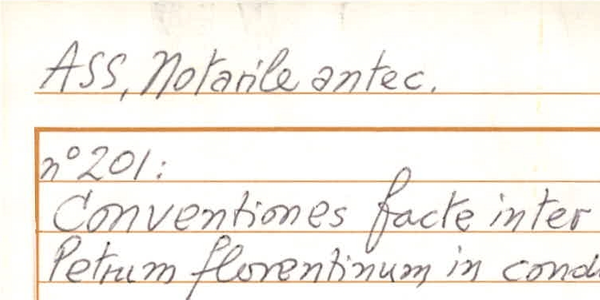 ASS, Notarile antec.
n° 201:
Conventiones facte inter
Petrum florentinum in